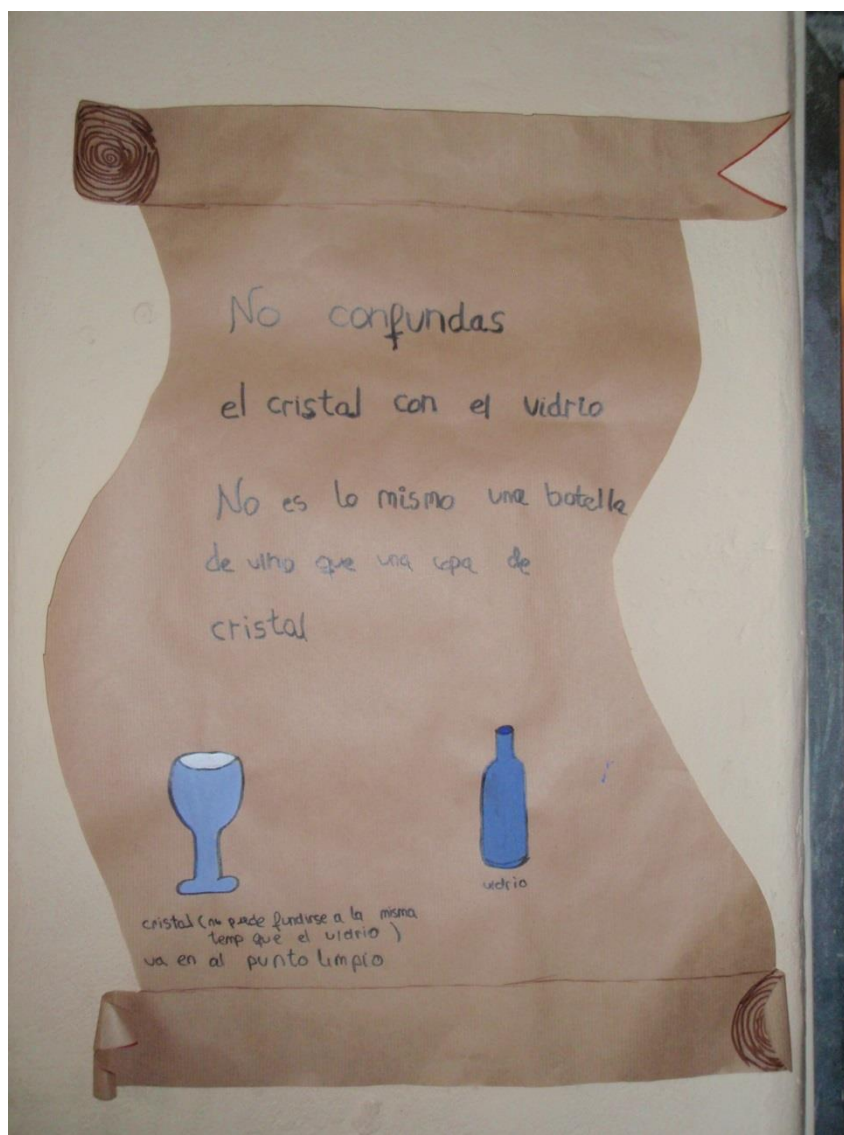 No confundas
el cristal con el vidrio
No es lo mismo una botella
de vino que una copa de
cristal
vidrio
cristal (no puede fundirse a la misma
temp que el vidrio )
va en al punto limpio